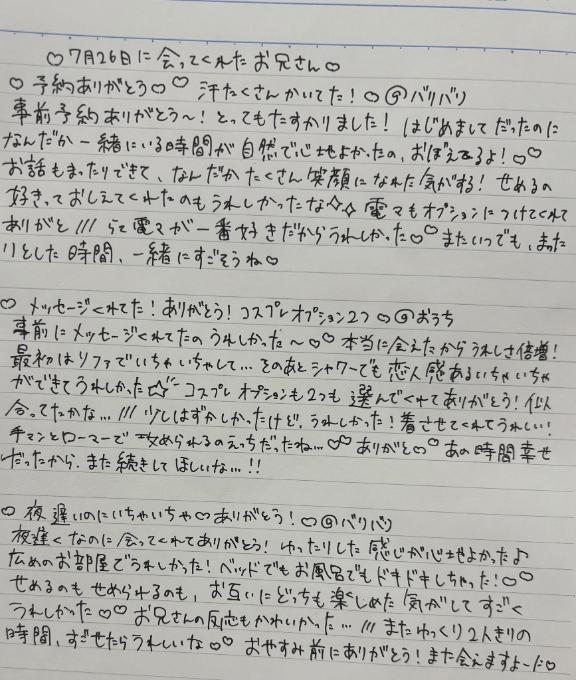 ♡7月26日に会ってくれたお兄さん♡
♡予約ありがとう♡♡ 汗たくさんかいてた!♡@バリバリ
事前予約ありがとう〜!とってもたすかりました!はじめましてだったのに
なんだか一緒にいる時間が自然で心地よかったの、おぼえてるよ!♡♡
お話もまったりできて、なんだかたくさん笑顔になれた気がする!せめるの
好きっておしえてくれたのもうれしかったな☆☆ 電マもオプションにつけてくれて
ありがと///らて電マが一番好きだからうれしかった♡♡またいつでも、まった
りとした時間、一緒にすごそうね♡
♡メッセージくれてた!ありがとう!コスプレオプション2つ♡@おうち
事前にメッセージくれてたのうれしかった〜♡♡本当に会えたからうれしさ倍増!
最初はソファでいちゃいちゃして…そのあとシャワーでも恋人感あるいちゃいちゃ
ができてうれしかった☆ コスプレオプションも2つも選んでくれてありがとう!似
合ってたかな…///少しはずかしかったけど、うれしかった!着させてくれてうれしい!
チマンとローマーで攻められるのえっちだったね…♡♡ありがと♡♡あの時間幸せ
だったから、また続きしてほしいな…!!
♡夜遅いのにいちゃいちゃ♡ありがとう!♡@バリバリ
夜遅くなのに会ってくれてありがとう!ゆったりした感じが心地よかった♪
広めのお部屋でうれしかった!ベッドでもお風呂でもドキドキしちゃった!♡♡
せめるのもせめられるのも、お互いにどっちも楽しめた気がしてすごく
うれしかった♡♡お兄さんの反応もかわいかった…///またゆっくり2人きりの
時間、すごせたらうれしいな♡♡ おやすみ前にありがとう!また会えますよーに♡